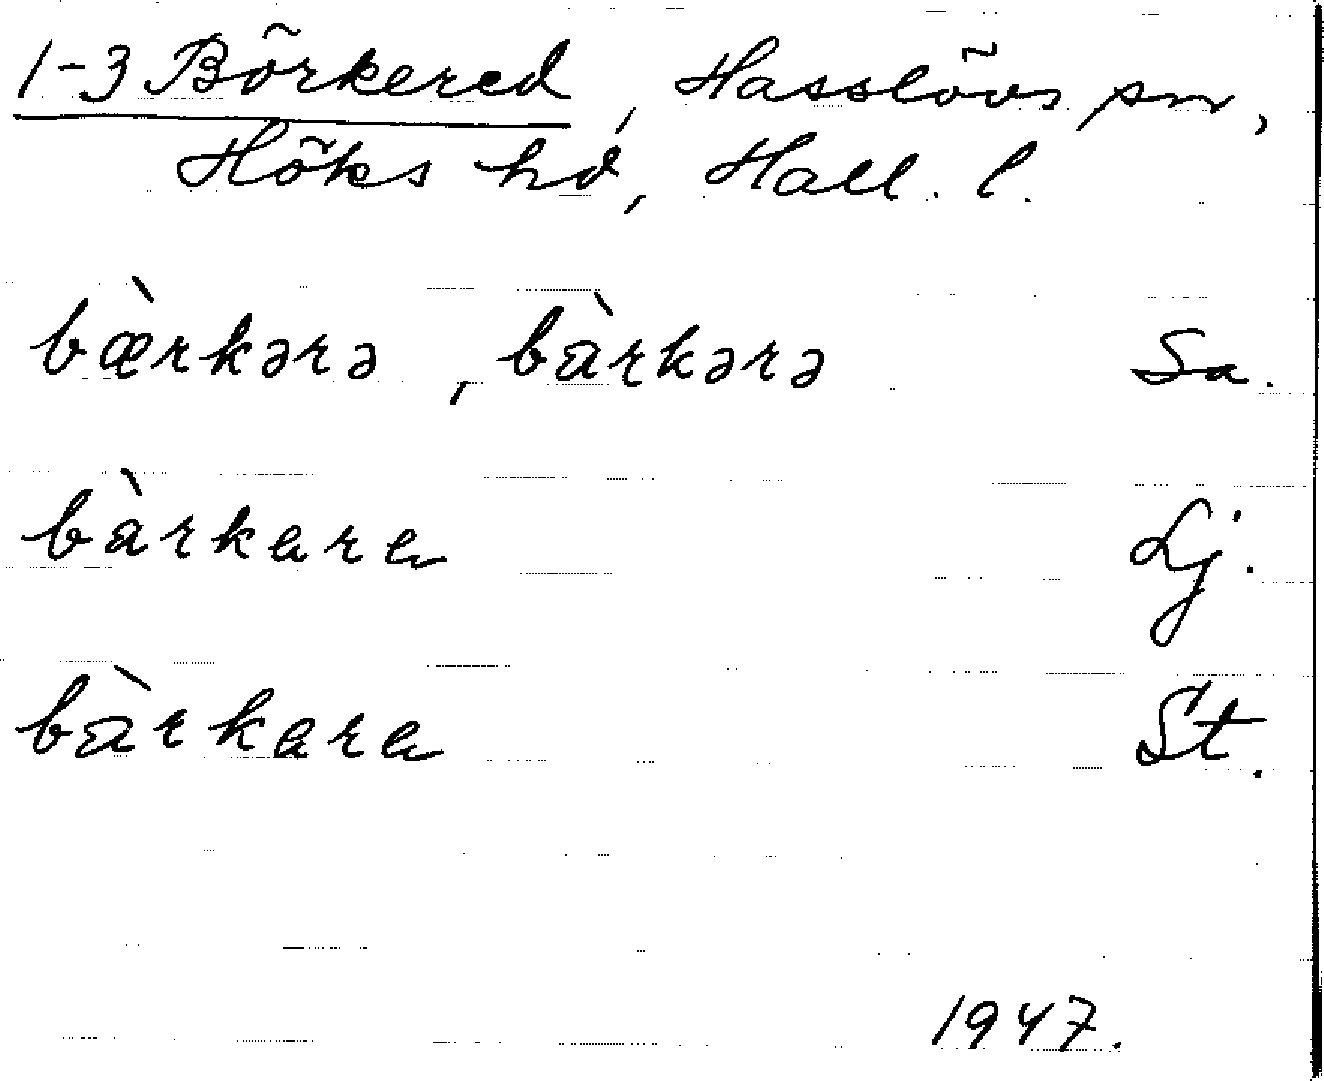 1-3 Börkered, Hasslövs sn,
Höks hd, Hall. l.
bæ̀rkərə, bàrkərə Sa.
bàrkara Lj.
bàrkara St.
1947.